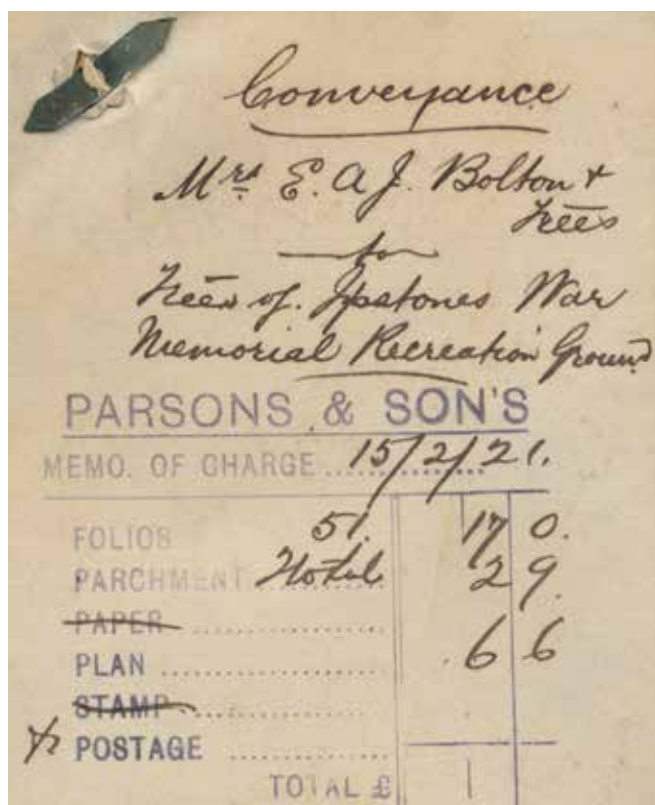 Conveyance
Mrs E. A. J. Bolton &
Trees
to
Trees of Ipstones War
Memorial Recreation Ground
PARSONS & SON'S
MEMO. OF CHARGE ... 15/2/21.
FOLIOS 51. 17 0.
PARCHMENT 2 9.
PAPER
PLAN 6 6
STAMP
POSTAGE
TOTAL £